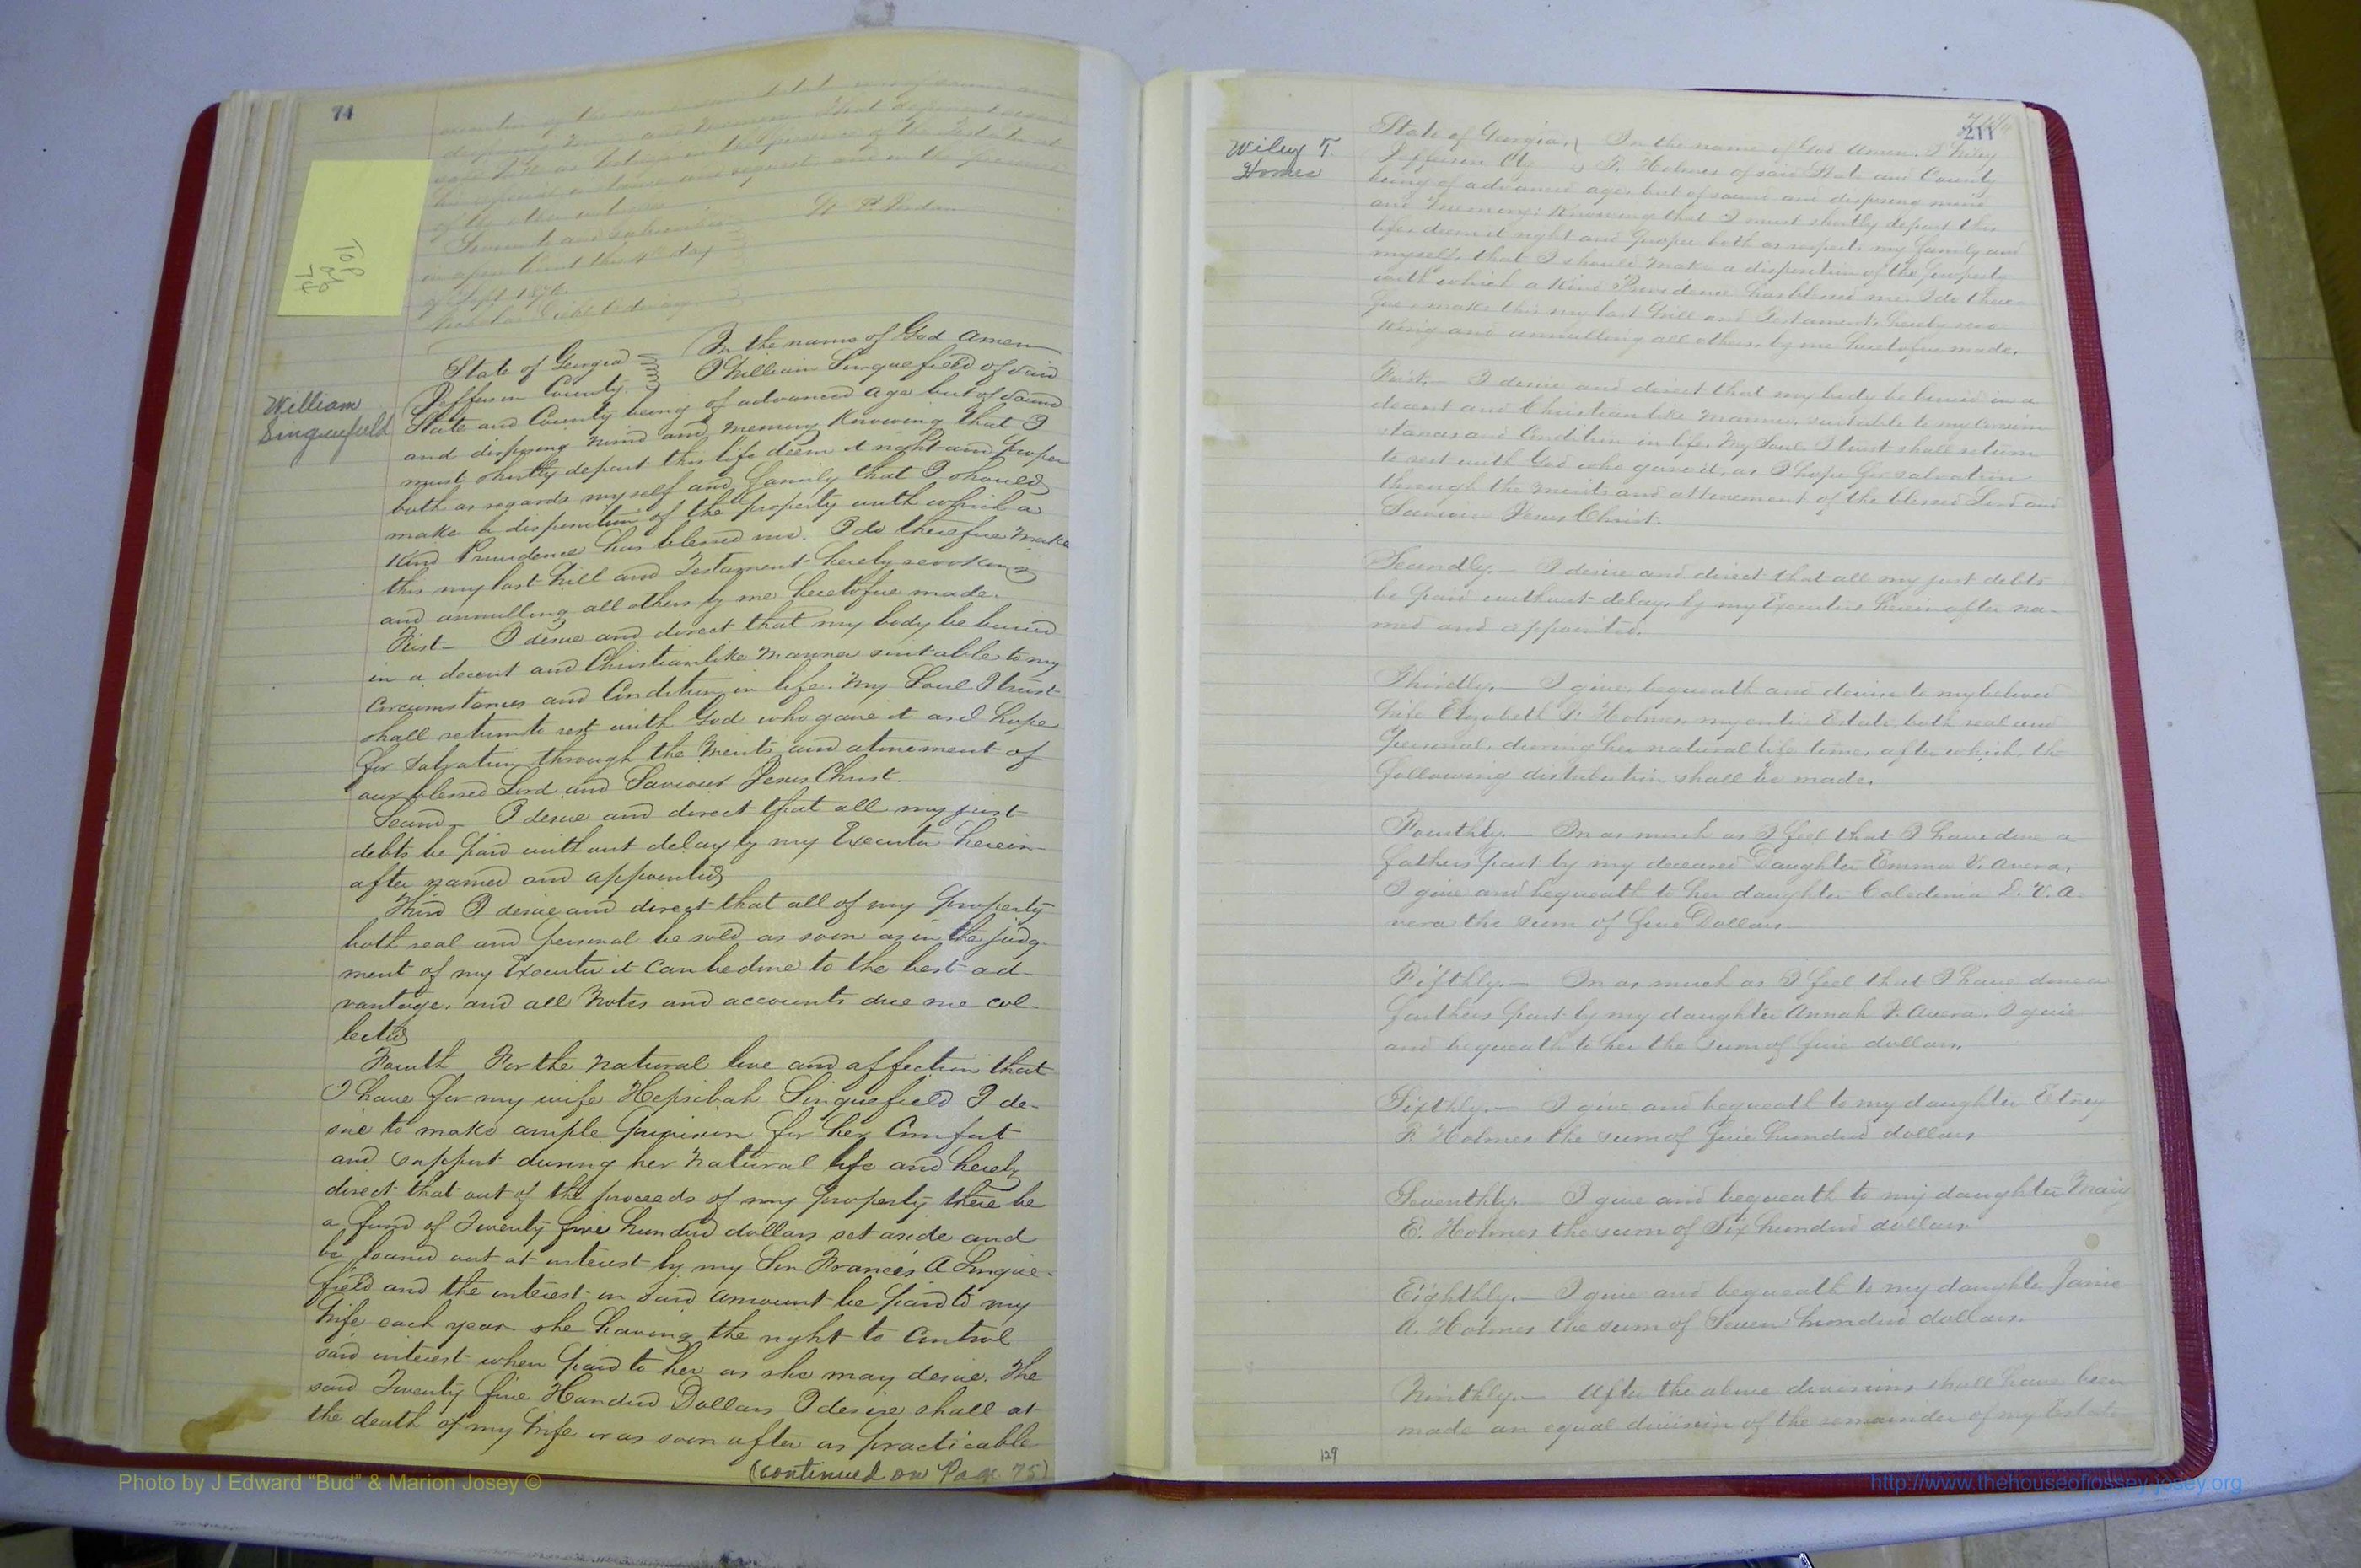 74
Top
Pg
72
execution of the same
disposing mind and memory. That deponent
as a witness in the presence of the Testator
his special instance and request and in the presence
of the other witnesses
Sworn to and subscribed
in open Court this 4th day
of Sept 1876.
William
Sinquefield
State of Georgia
Jefferson County
In the name of God Amen
I William Sinquefield of said
State and County being of advanced age but of sound
and disposing mind and memory Knowing that I
must shortly depart this life deem it right and proper
both as regards myself and family that I should
make a disposition of the property with which a
Kind Providence has blessed me. I do therefore make
this my last Will and Testament hereby revoking
and annulling all others by me heretofore made.
First— I desire and direct that my body be buried
in a decent and Christianlike manner suitable to my
circumstances and Condition in life. My Soul I trust
shall return to rest with God who gave it as I hope
for salvation through the merits and atonement of
our blessed Lord and Saviour Jesus Christ.
Second— I desire and direct that all my just
debts be paid without delay by my Executor herein-
after named and appointed
Third I desire and direct that all of my property
both real and personal be sold as soon as in the judg-
ment of my Executor it can be done to the best ad-
vantage. and all Notes and accounts due me col-
lected
Fourth For the natural love and affection that
I have for my wife Hepsibah Sinquefield I de-
sire to make ample provision for her Comfort
and support during her natural life and hereby
direct that out of the proceeds of my property there be
a fund of Twenty five hundred dollars set aside and
be loaned out at interest by my Son Francis A Sinque-
field and the interest on said amount be paid to my
Wife each year she having the right to Control
said interest when paid to her as she may desire. The
said Twenty five Hundred Dollars I desire shall at
the death of my Wife or as soon after as practicable
(continued on Page 75)
211
Wiley T.
Homes
State of Georgia,
Jefferson Cty
In the name of God Amen. I Wiley
P. Holmes of said State and County
being of advanced age, but of sound and disposing mind
and memory; Knowing that I must shortly depart this
life, deem it right and proper both as respects my family and
myself, that I should make a disposition of the property
with which a Kind Providence has blessed me, I do there-
fore make this my last Will and Testament, hereby revo-
king and annulling all others, by me heretofore made.
First,— I desire and direct that my body be buried in a
decent and Christian like manner, suitable to my circum-
stances and Condition in life. My Soul, I trust shall return
to rest with God who gave it, as I hope for salvation
through the merits and attonement of the blessed Lord and
Saviour Jesus Christ.
Secondly.— I desire and direct that all my just debts
be paid without delay, by my Executors hereinafter na-
med and appointed.
Thirdly,— I give, bequeath and devise to my beloved
Wife Elizabeth P. Holmes, my entire Estate, both real and
personal, during her natural life time, after which, the
following distribution shall be made.
Fourthly.— In as much as I feel that I have done a
fathers part by my deceased Daughter Emma V. Avera,
I give and bequeath to her daughter Caledonia E. V. A-
vera the sum of five Dollars—
Fifthly.— In as much as I feel that I have done a
farthers part by my daughter Annah P. Avera. I give
and bequeath to her the sum of five dollars.
Sixthly.— I give and bequeath to my daughter Etney
R Holmes the sum of five hundred dollars
Seventhly.— I give and bequeath to my daughter Mary
E. Holmes the sum of Six hundred dollars
Eighthly.— I give and bequeath to my daughter Janie
A. Holmes the sum of Seven hundred dollars.
Ninthly.— After the above divisions shall have been
made an equal division of the remainder of my Estate
129
Photo by J Edward “Bud” & Marion Josey ©
http://www.thehouseofjossey-josey.org